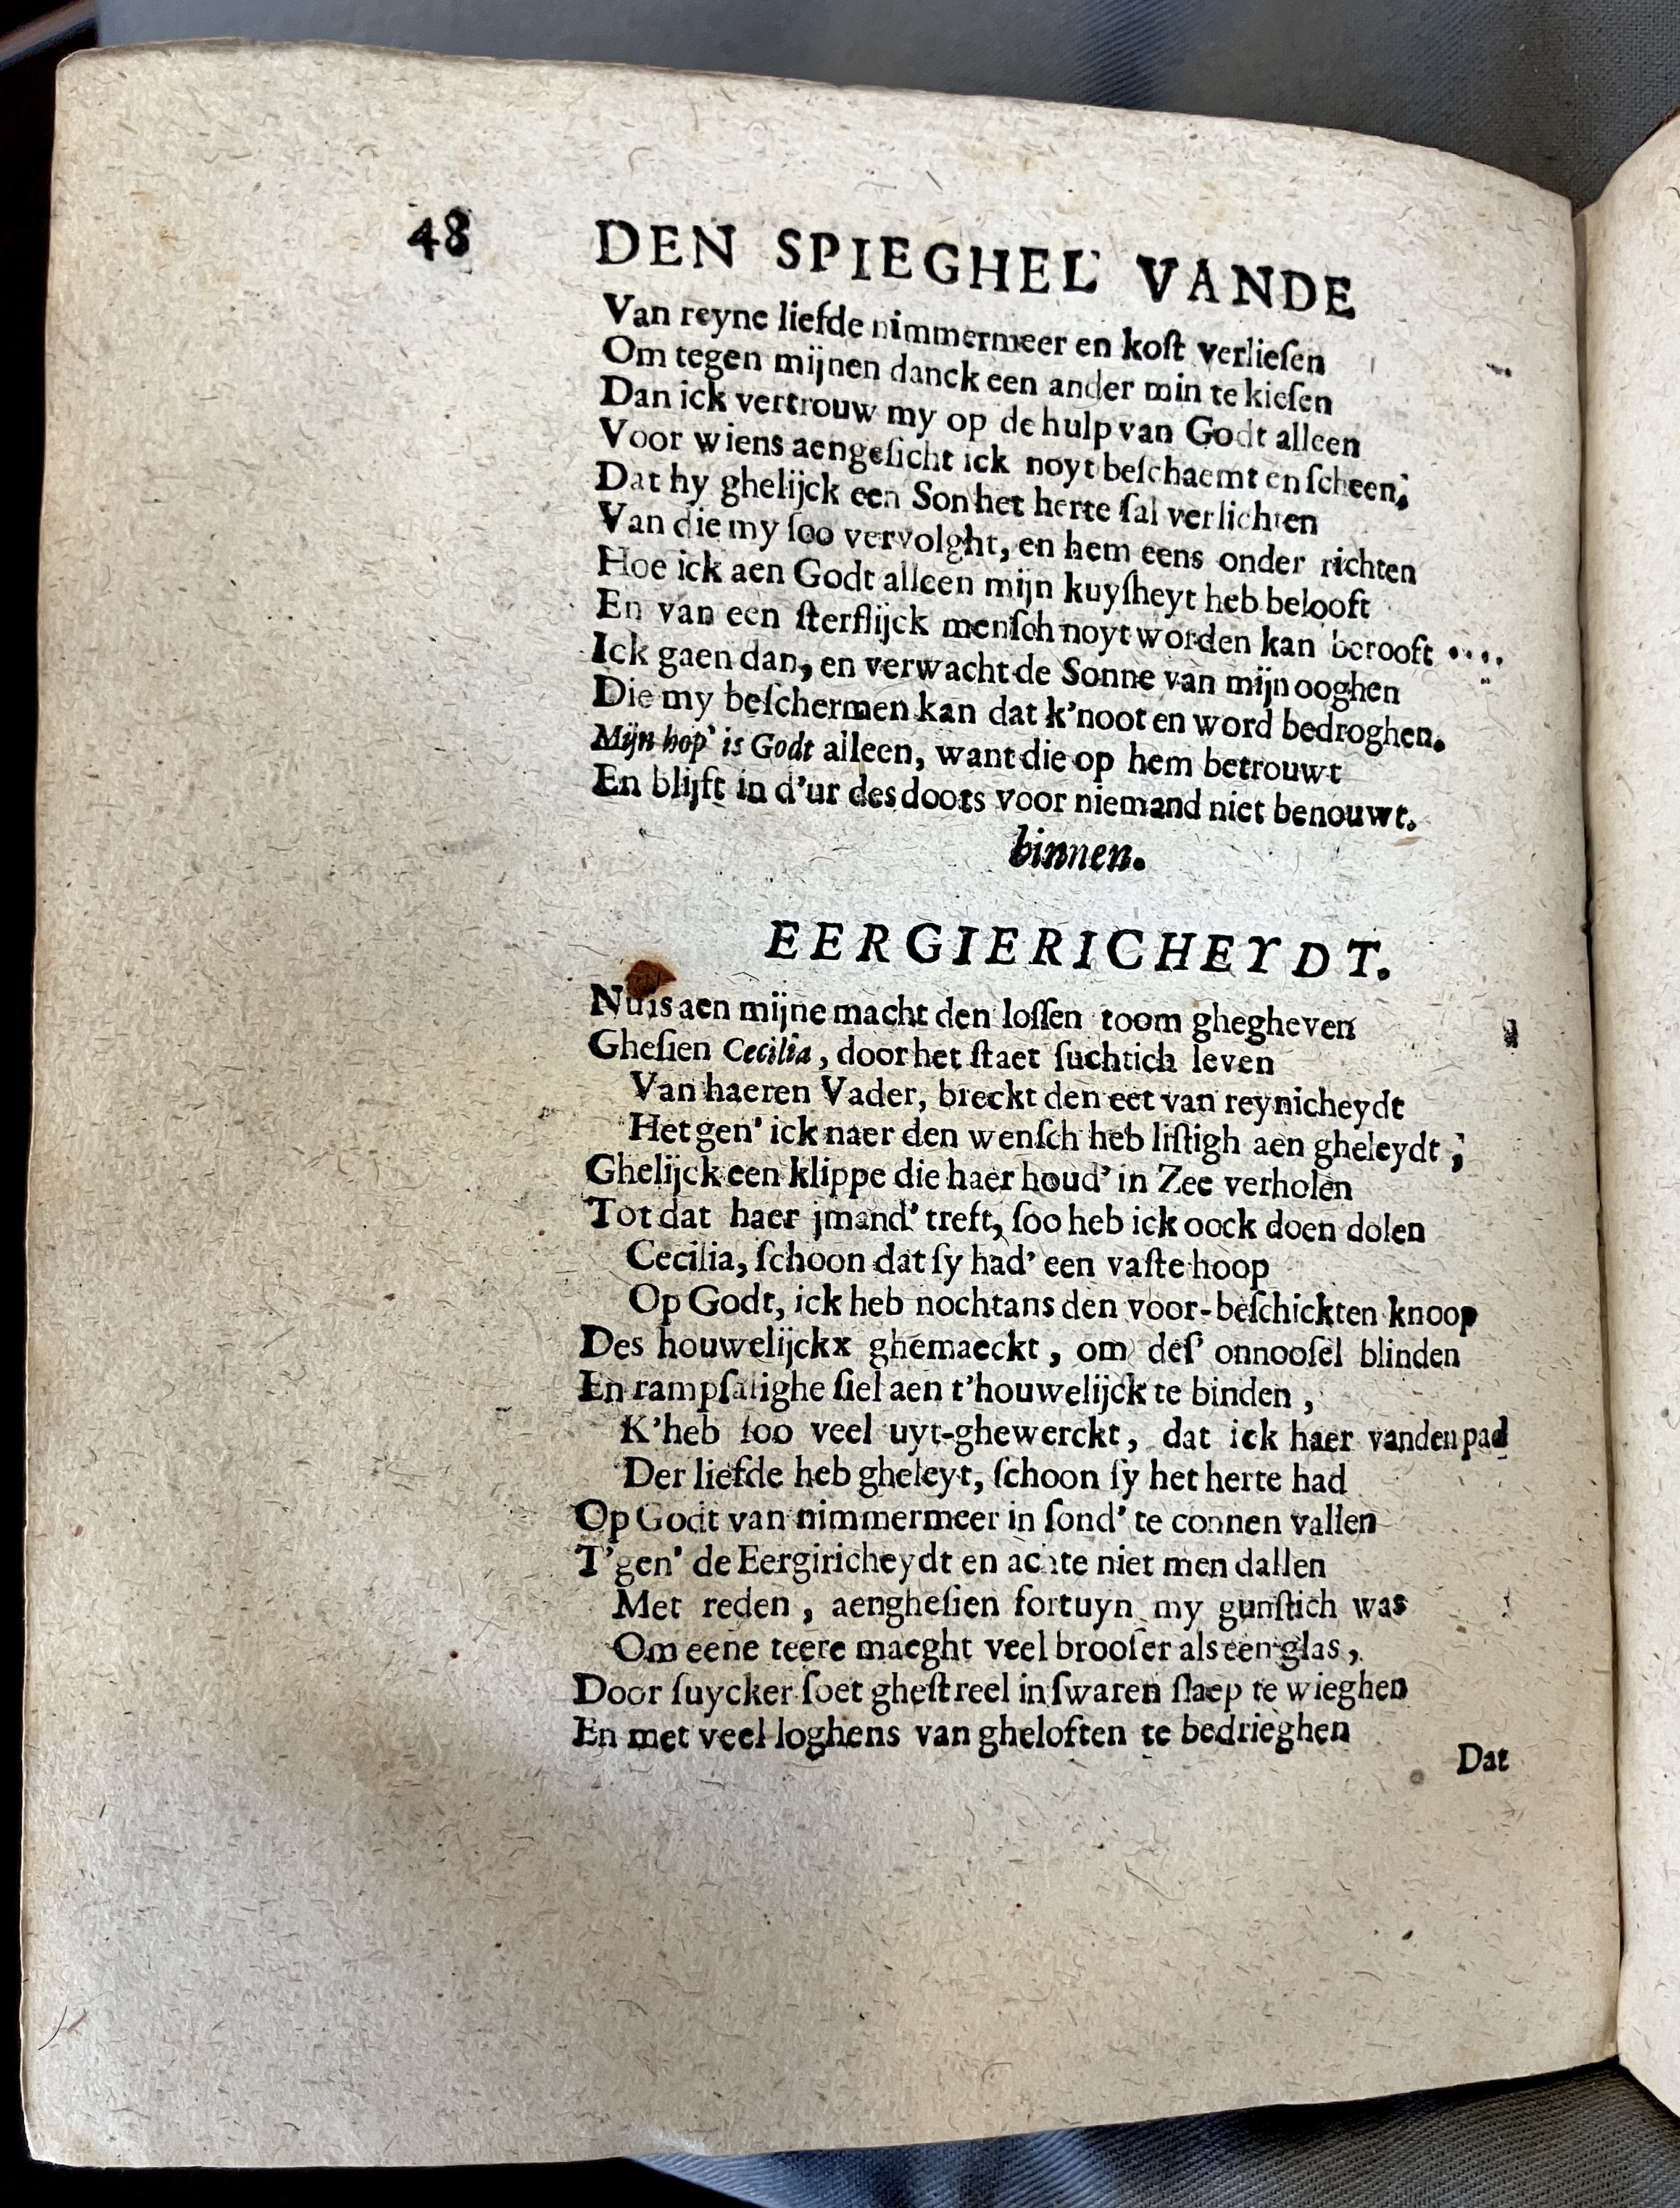 48 DEN SPIEGHEL VANDE
Van reyne liefde nimmermeer en koſt verlieſen
Om tegen mijnen danck een ander min te kieſen
Dan ick vertrouw my op de hulp van Godt alleen
Voor wiens aengeſicht ick noyt beſchaemt en ſcheen;
Dat hy ghelijck een Son het herte ſal verlichten
Van die my ſoo vervolght, en hem eens onder richten
Hoe ick aen Godt alleen mijn kuyſheyt heb belooft
En van een ſterflijck menſch noyt worden kan berooft ....
Ick gaen dan, en verwacht de Sonne van mijn ooghen
Die my beſchermen kan dat k'noot en word bedroghen.
Mijn hop' is Godt alleen, want die op hem betrouwt
En blijft in d'ur des doots voor niemand niet benouwt.
binnen.
EERGIERICHEYDT.
Nu is aen mijne macht den loſſen toom ghegheven
Gheſien Cecilia, door het ſtaet ſuchtich leven
Van haeren Vader, breckt den eet van reynicheydt
Het gen' ick naer den wenſch heb liſtigh aen gheleydt;
Ghelijck een klippe die haer houd' in Zee verholen
Tot dat haer jmand' treft, ſoo heb ick oock doen dolen
Cecilia, ſchoon dat ſy had' een vaſte hoop
Op Godt, ick heb nochtans den voor-beſchickten knoop
Des houwelijckx ghemaeckt, om deſ' onnooſel blinden
En rampſalighe ſiel aen t'houwelijck te binden,
K'heb ſoo veel uyt-ghewerckt, dat ick haer vanden pad
Der liefde heb gheleyt, ſchoon ſy het herte had
Op Godt van nimmermeer in ſond' te connen vallen
T'gen' de Eergiricheydt en achte niet men dallen
Met reden, aengheſien fortuyn my gunſtich was
Om eene teere maeght veel brooſer als een glas,
Door ſuycker ſoet gheſtreel in ſwaren ſlaep te wieghen
En met veel loghens van gheloften te bedrieghen
Dat